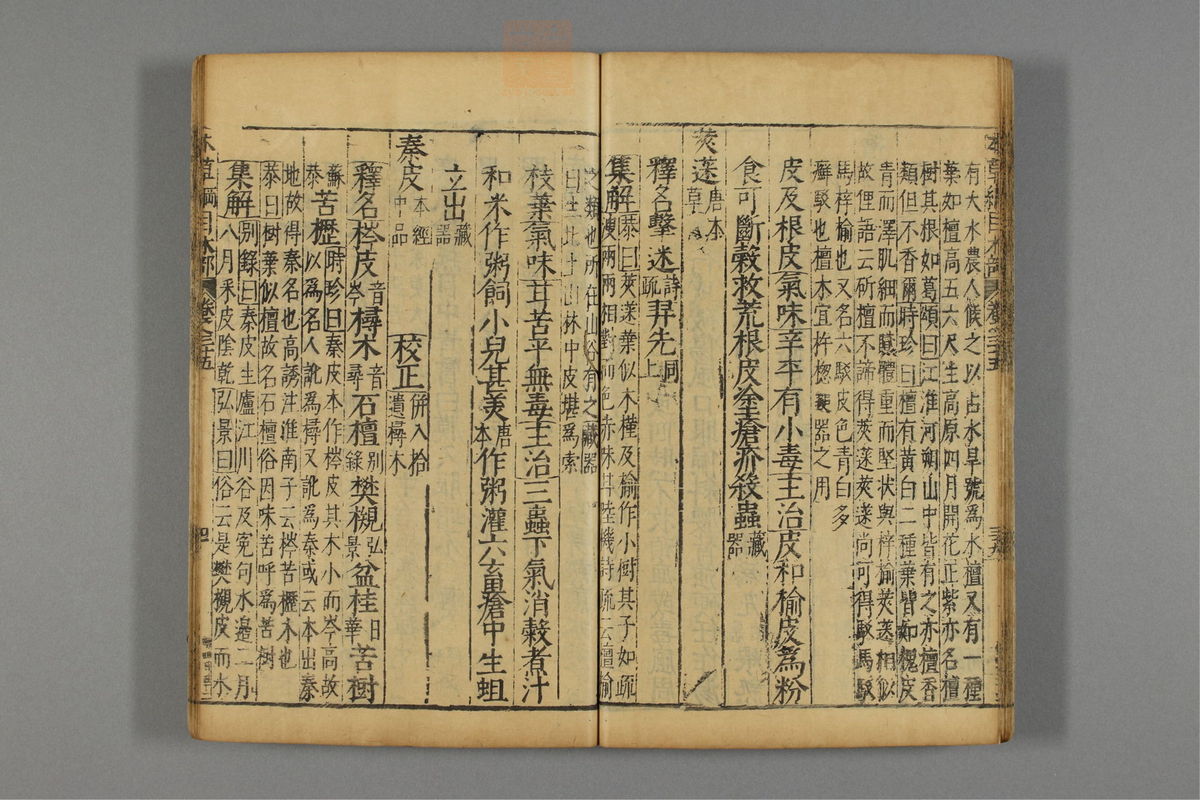 有大水農人候之以占水旱號為水檀又有一種
葉如檀高五六尺生高原四月開花正紫亦名檀
樹其根如葛頌曰江淮河朔山中皆有之亦檀香
類但不香爾時珍曰檀有黃白二種葉皆如槐皮
青而澤肌細而膩體重而堅狀與梓榆莢蒾相似
故俚語云斫檀不諦得莢蒾莢蒾尚可得駁馬駁
馬梓榆也又名六駁皮色青白多
癬駁也檀木宜杵楤鎚器之用
皮及根皮氣味辛平有小毒主治皮和榆皮為粉
食可斷穀救荒根皮塗瘡疥殺蟲藏器
莢蒾唐本草
釋名擊迷詩疏羿先同上
集解恭曰莢蒾葉似木槿及榆作小樹其子如疏
溲兩兩相對而色赤味甘陸機詩疏云檀榆
之類也所在山谷有之藏器
曰生北土山林中皮堪為索
枝葉氣味甘苦平無毒主治三蟲下氣消穀煮汁
和米作粥飼小兒甚美唐本作粥灌六畜瘡中生蛆
立出藏器
秦皮本經中品
校正併入拾遺樳木
釋名梣皮音岑樳木音尋石檀別錄樊槻弘景盆桂日華苦樹
蘇恭苦櫪時珍曰秦皮本作梣皮其木小而岑高故
以為名人訛為樳又訛為秦或云本出秦
地故得秦名也高誘注淮南子云梣苦櫪木也
恭曰樹葉似檀故名石檀俗因味苦呼為苦樹
集解別錄曰秦皮生廬江川谷及冤句水邊二月
八月采皮陰乾弘景曰俗云是樊槻皮而水
本草綱目木部
卷之三五